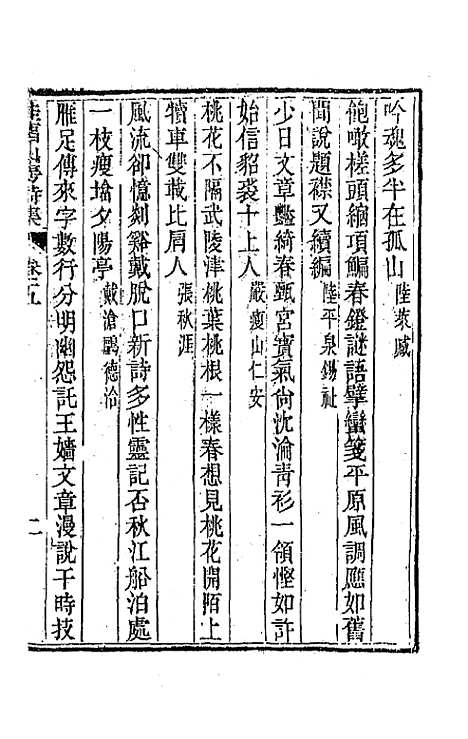 吟魂多半在孤山陸萊臧
飽噉槎頭縮項鯿春鐙謎語擘蠻箋平原風調應如舊
聞說題襟又續編陸平泉錫祉
少日文章豔綺春甄宮寳氣尙沈淪靑衫一領慳如許
始信貂裘十上人嚴瘦山仁安
桃花不隔武陵津桃葉桃根一樣春想見桃花開陌上
犢車雙載比肩人張秋涯
風流卻憶剡谿戴脫口新詩多性靈記否秋江船泊處
一枝瘦塔夕陽亭戴滄鸝德洽
雁足傳來字數行分明幽怨託王嬙文章漫說干時技
詩集
卷五
二